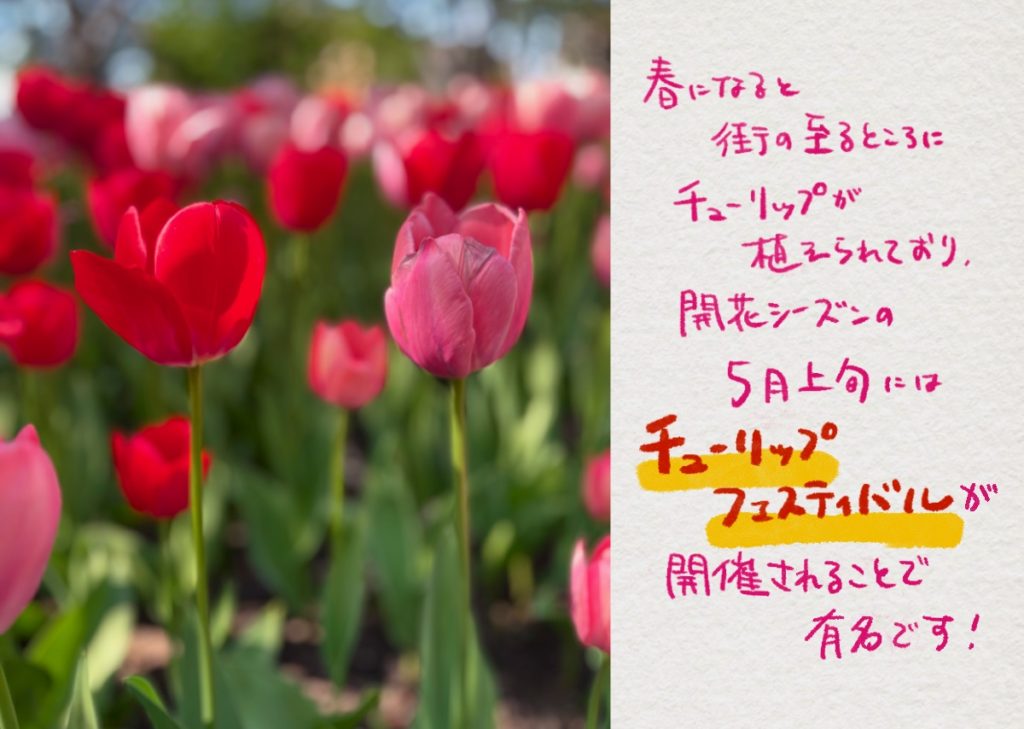 春になると
街の至るところに
チューリップが
植えられており、
開花シーズンの
5月上旬には
チューリップ
フェスティバルが
開催されることで
有名です！